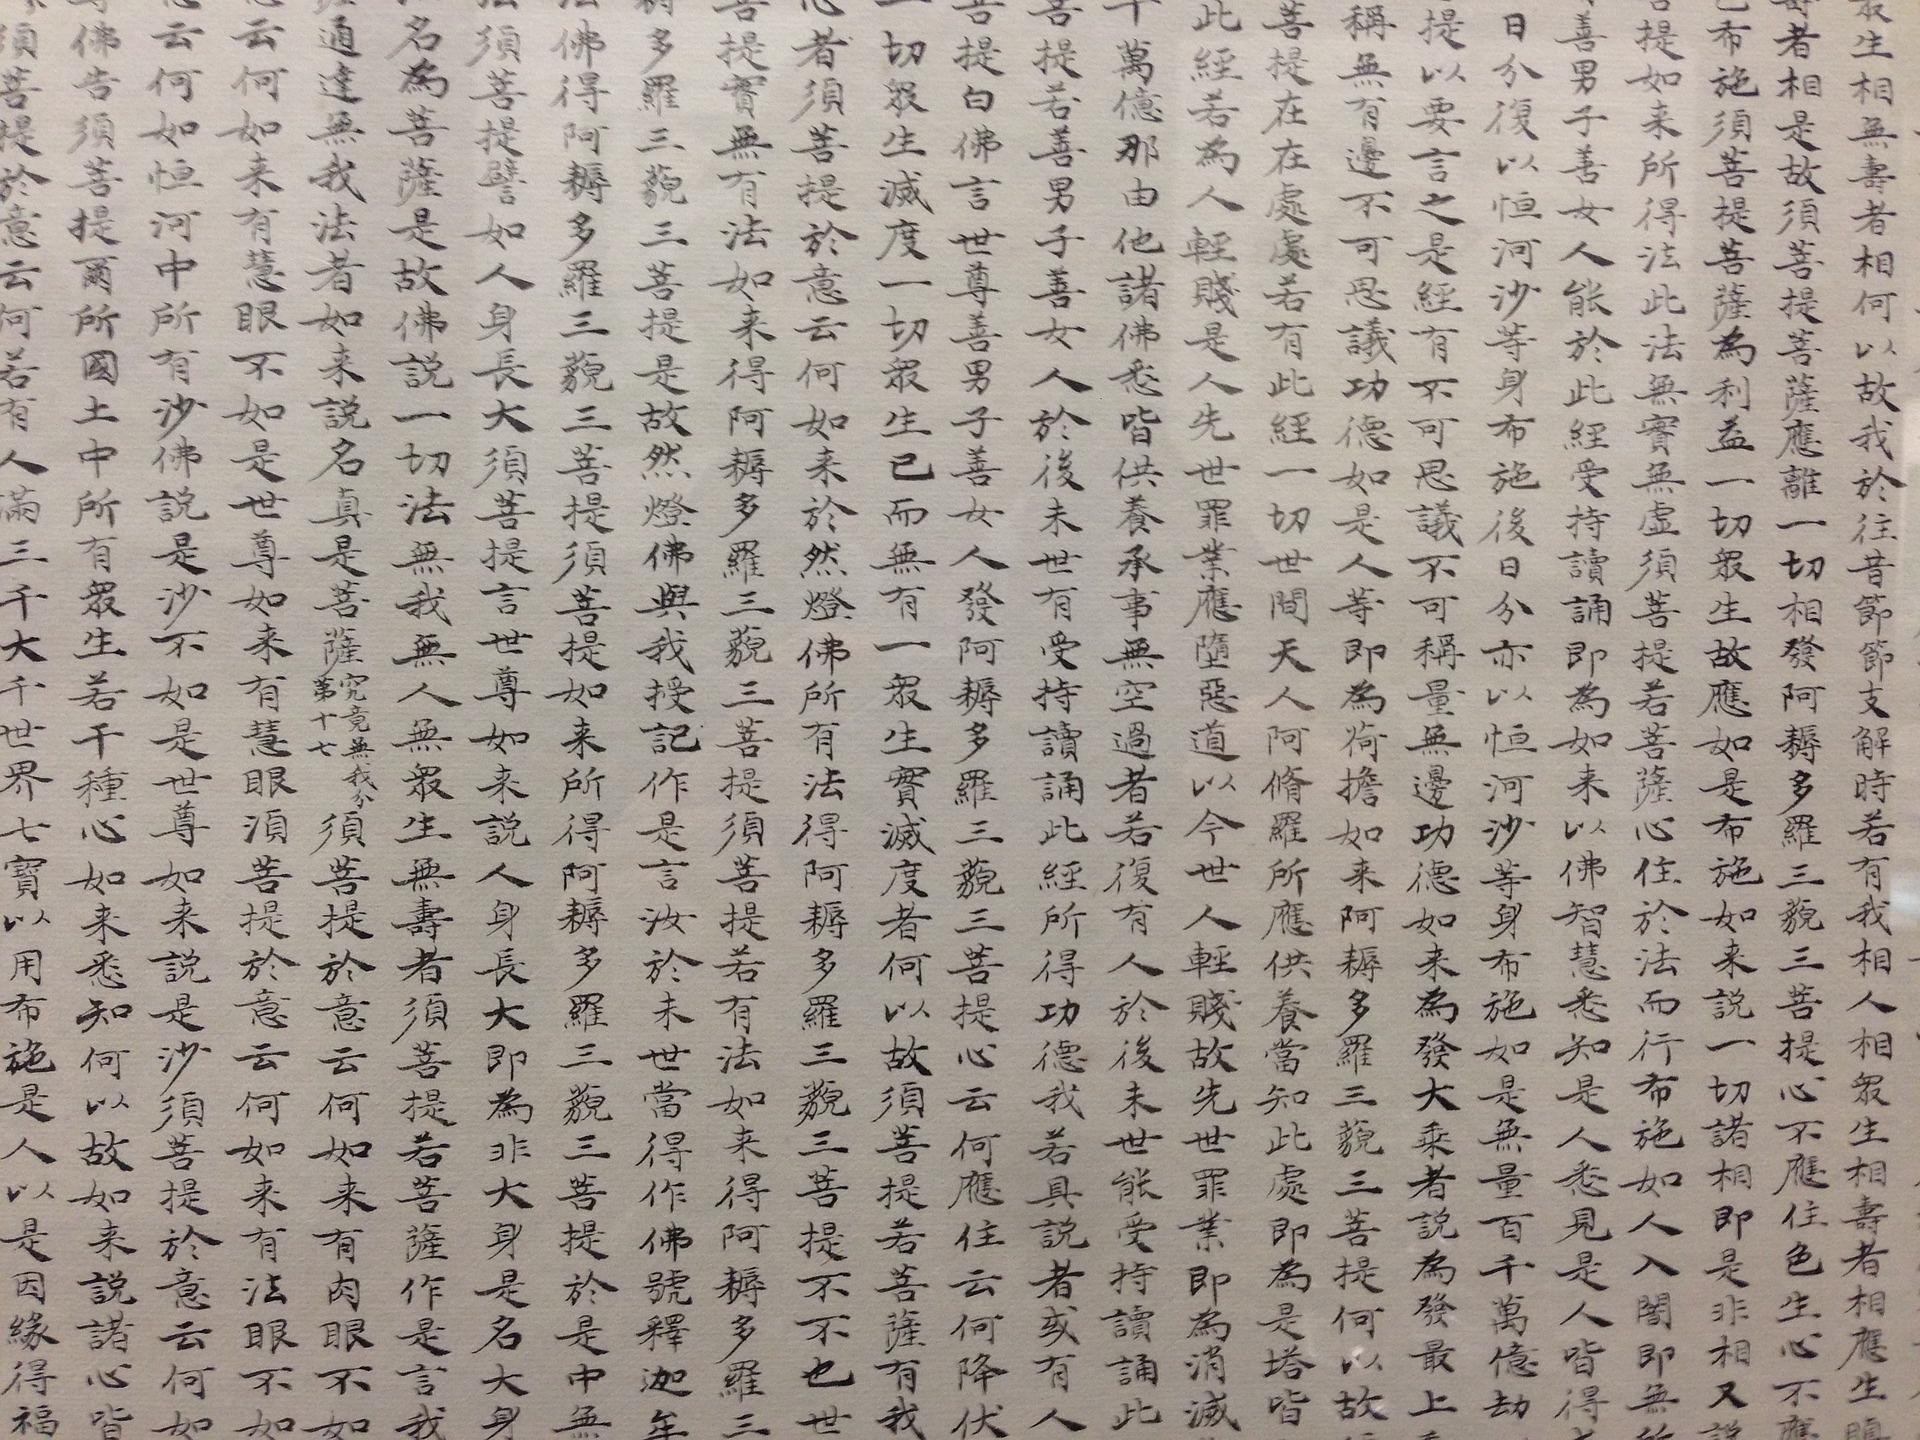 眾生相無壽者相何以故我於往昔節節支解時若有我相人相眾生相壽者相應生瞋
壽者相是故須菩提菩薩應離一切相發阿耨多羅三藐三菩提心不應住色生心不應
色布施須菩提菩薩為利益一切眾生故應如是布施如来說一切諸相即是非相又說
菩提如来所得法此法無實無虛須菩提若菩薩心住於法而行布施如人入闇即無所
善男子善女人能於此經受持讀誦即為如来以佛智慧悉知是人悉見是人皆得
日分復以恒河沙等身布施後日分亦以恒河沙等身布施如是無量百千萬億劫
提以要言之是經有不可思議不可稱量無邊功德如来為發大乘者說為發最上
稱無有邊不可思議功德如是人等即為荷擔如来阿耨多羅三藐三菩提何以故
菩提在在處處若有此經一切世間天人阿脩羅所應供養當知此處即為是塔皆
此經若為人輕賤是人先世罪業應墮惡道以今世人輕賤故先世罪業即為消滅
千萬億那由他諸佛悉皆供養承事無空過者若復有人於後末世能受持讀誦此
菩提若善男子善女人於後末世有受持讀誦此經所得功德我若具說者或有人
菩提白佛言世尊善男子善女人發阿耨多羅三藐三菩提心云何應住云何降伏
一切眾生滅度一切眾生已而無有一眾生實滅度者何以故須菩提若菩薩有我
心者須菩提於意云何如来於然燈佛所有法得阿耨多羅三藐三菩提不不也世
菩提實無有法如来得阿耨多羅三藐三菩提須菩提若有法如来得阿耨多羅三
耨多羅三藐三菩提是故然燈佛與我授記作是言汝於未世當得作佛號釋迦牟
法佛得阿耨多羅三藐三菩提須菩提如来所得阿耨多羅三藐三菩提於是中無
法須菩提譬如人身長大須菩提言世尊如来說人身長大即為非大身是名大身
名為菩薩是故佛說一切法無我無人無眾生無壽者須菩提若菩薩作是言我
通達無我法者如来說名真是菩薩究竟無我分第十七須菩提於意云何如来有肉眼不如
云何如来有慧眼不如是世尊如来有慧眼須菩提於意云何如来有法眼不如
云何如恒河中所有沙佛說是沙不如是世尊如来說是沙須菩提於意云何如
佛告須菩提爾所國土中所有眾生若干種心如来悉知何以故如来說諸心皆
須菩提於意云何若有人滿三千大千世界七寶以用布施是人以是因緣得福